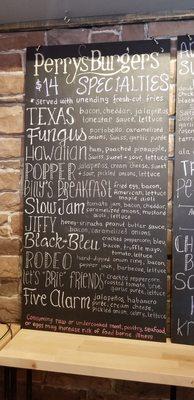 Perry's Burgers
$14 SPECIALTIES
* served with unending fresh-cut fries
TEXAS bacon, cheddar, jalapeños,
lonestar sauce, lettuce
Fungus portobello, caramelized
onions, Swiss, garlic purée
Hawaiian ham, poached pineapple,
Swiss, sweet + sour, lettuce
POPPER jalapeños, cream cheese, swiss
+ sour, pickled onions, lettuce
Billy's BREAKFAST fried egg, bacon,
American, lettuce,
maple aioli
Slow Jam tomato jam, bacon, cheddar,
caramelized onions, mustard
aioli, lettuce
JIFFY honey-sriracha peanut butter sauce,
bacon, caramelized onions
Black-Bleu cracked peppercorn, bleu,
bacon, mayo,
tomato, lettuce
RODEO hand-dipped onion ring, bacon,
pepper jack, barbecue, lettuce
let's "BRIE" FRIENDS cracked peppercorn,
roasted tomato, brie,
garlic purée, lettuce
Five Alarm jalapeños, habanero
purée, cream cheese,
pickled onion, cabo, lettuce
Consuming raw or undercooked meat, poultry, seafood,
or eggs may increase risk of food borne illness